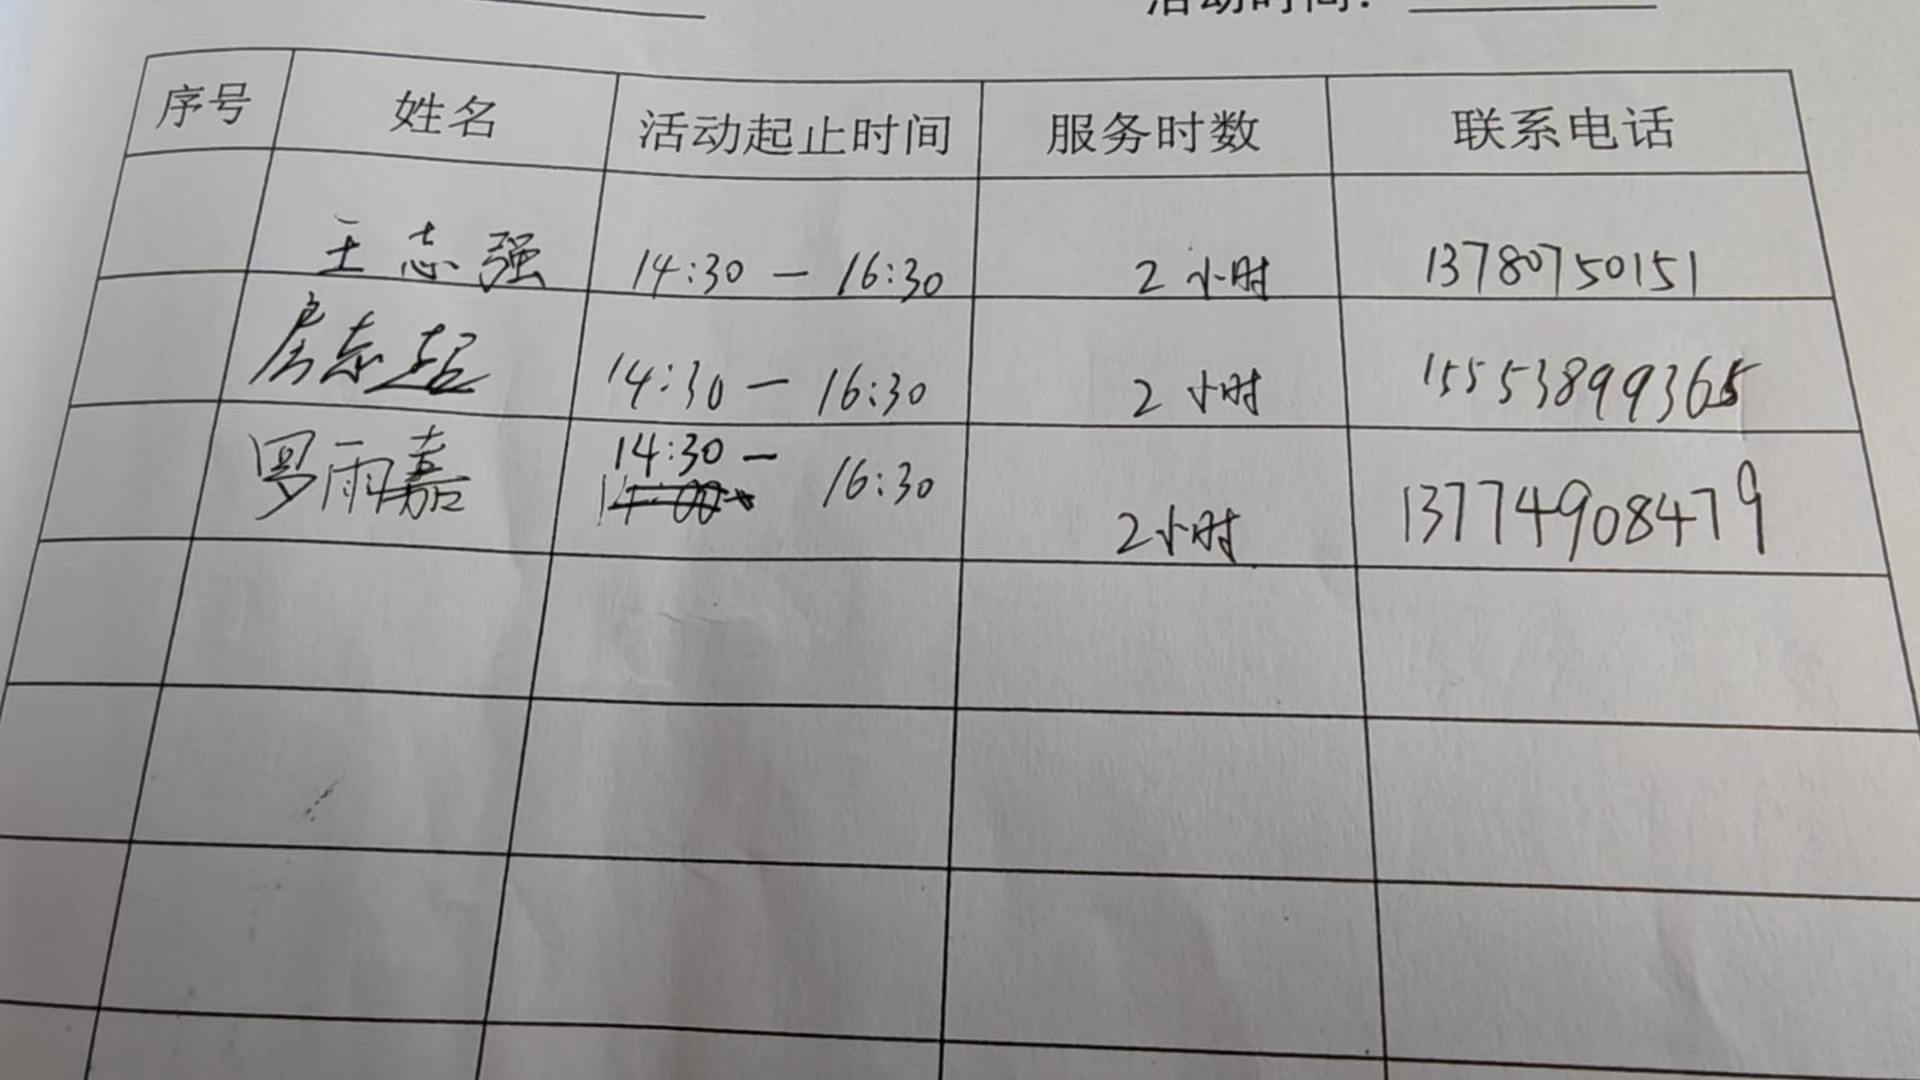 活动时间：
序号 姓名 活动起止时间 服务时数 联系电话
王志强 14:30 — 16:30 2小时 13780750151
房志超 14:30 — 16:30 2小时 15553899365
罗雨嘉 14:30 — 16:30 2小时 13774908479